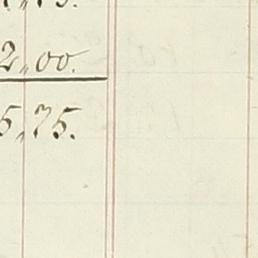 2,00.
5,75.